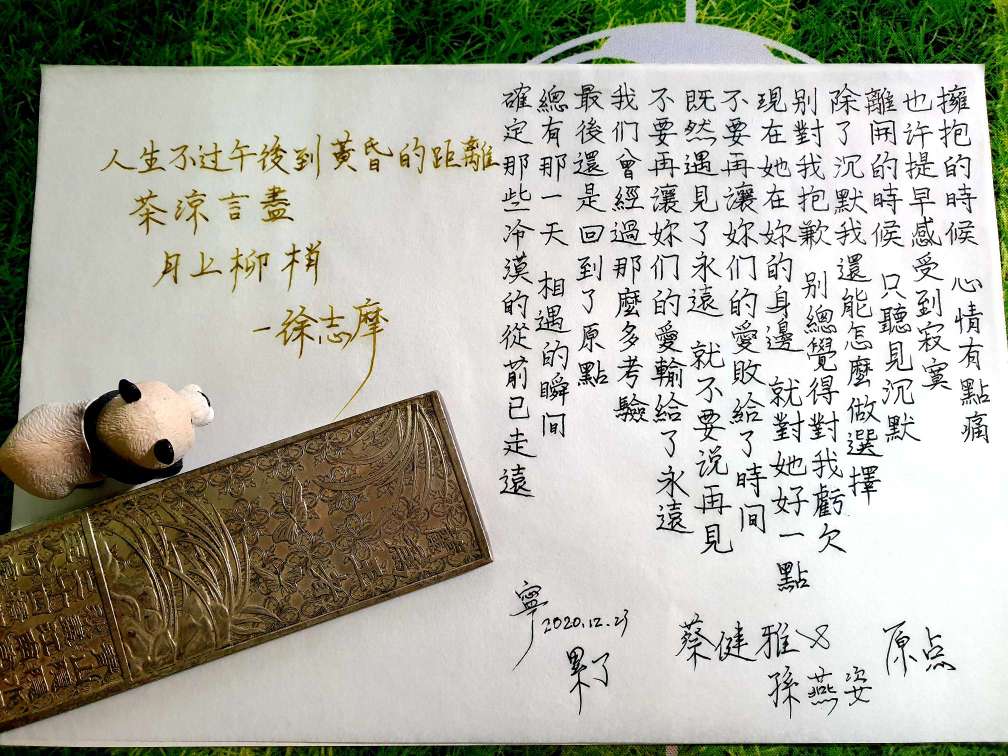 擁抱的時候 心情有點痛
也许提早感受到寂寞
離開的時候 只聽見沉默
除了沉默我還能怎麼做選擇
别對我抱歉 别總覺得對我虧欠
現在她在妳的身邊 就對她好一點
不要再讓妳们的愛敗給了時间
既然遇見了永遠 就不要说再見
不要再讓妳们的愛輸給了永遠
我们曾經過那麼多考驗
最後還是回到了原點
總有那一天 相遇的瞬间
確定那些冷漠的從前已走遠
原点
蔡健雅 &
孫燕姿
寧
2020.12.23
累了
人生不过午後到黃昏的距離
茶涼言盡
月上柳梢
—徐志摩